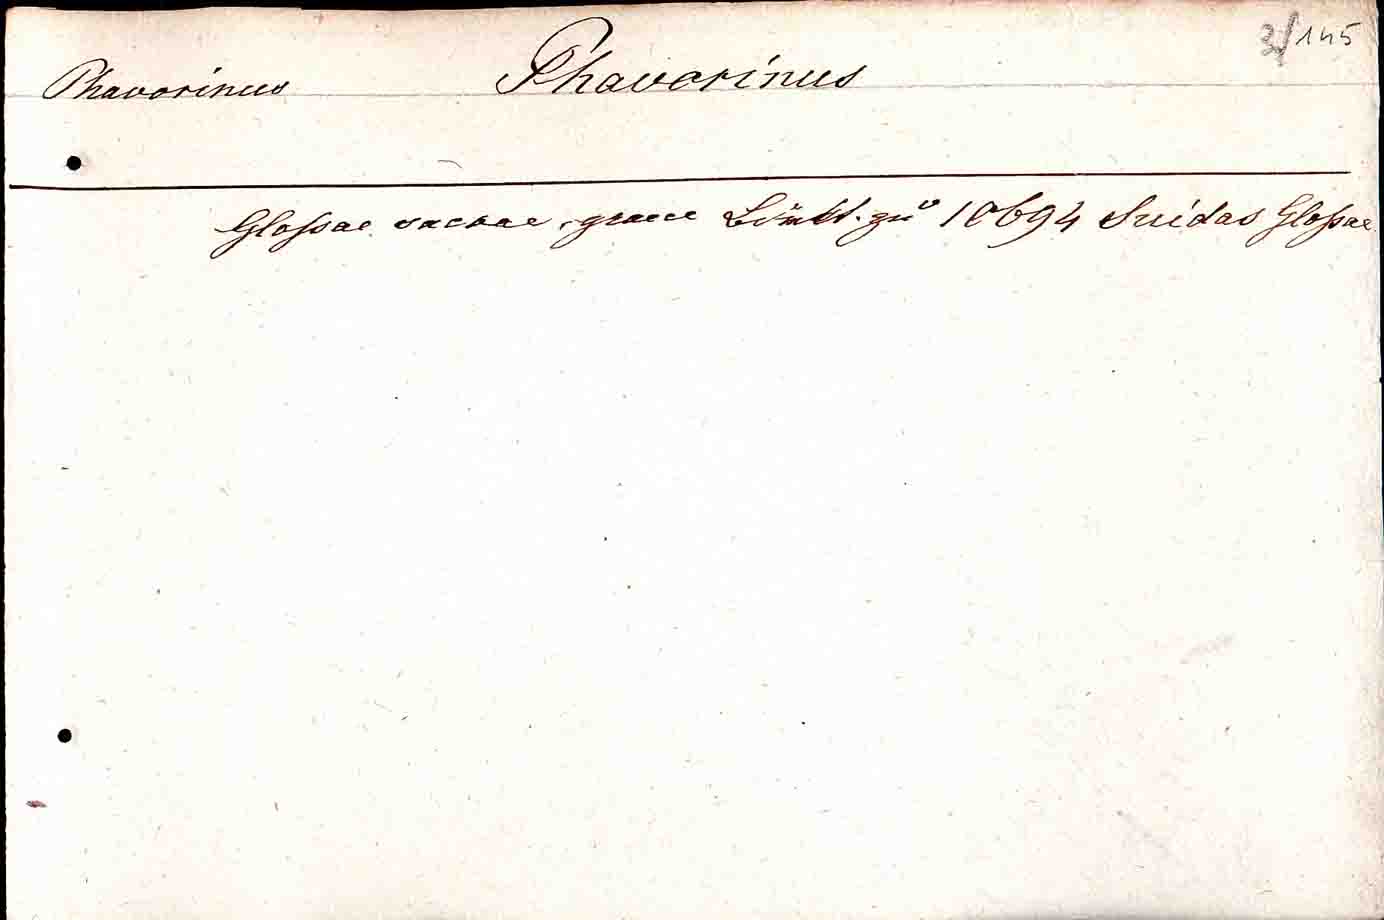 3/145
Phavorinus Phavorinus
Glossae sacrae graece zu 10694 Suidas Glossae